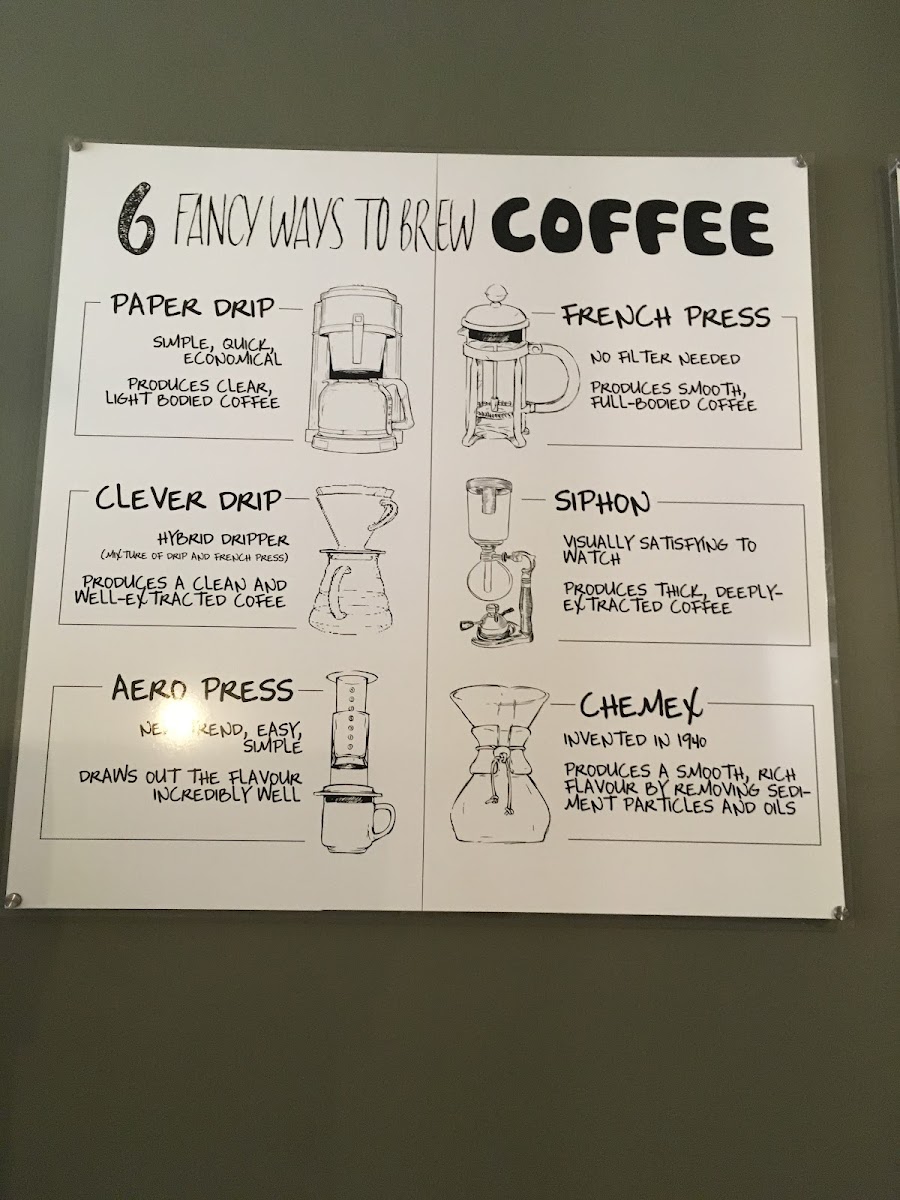 6 FANCY WAYS TO BREW COFFEE
PAPER DRIP
SIMPLE, QUICK,
ECONOMICAL
PRODUCES CLEAR,
LIGHT BODIED COFFEE
FRENCH PRESS
NO FILTER NEEDED
PRODUCES SMOOTH,
FULL-BODIED COFFEE
CLEVER DRIP
HYBRID DRIPPER
(MIXTURE OF DRIP AND FRENCH PRESS)
PRODUCES A CLEAN AND
WELL-EXTRACTED COFEE
SIPHON
VISUALLY SATISFYING TO
WATCH
PRODUCES THICK, DEEPLY-
EXTRACTED COFFEE
AERO PRESS
EASY,
SIMPLE
DRAWS OUT THE FLAVOUR
INCREDIBLY WELL
CHEMEX
INVENTED IN 1940
PRODUCES A SMOOTH, RICH
FLAVOUR BY REMOVING SEDI-
MENT PARTICLES AND OILS